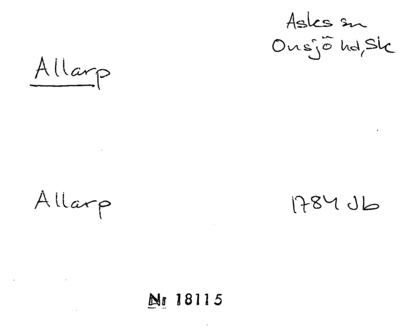 Asks sn
Onsjö hd, Sk
Allarp
Allarp
1784 Jb
Nr 18115